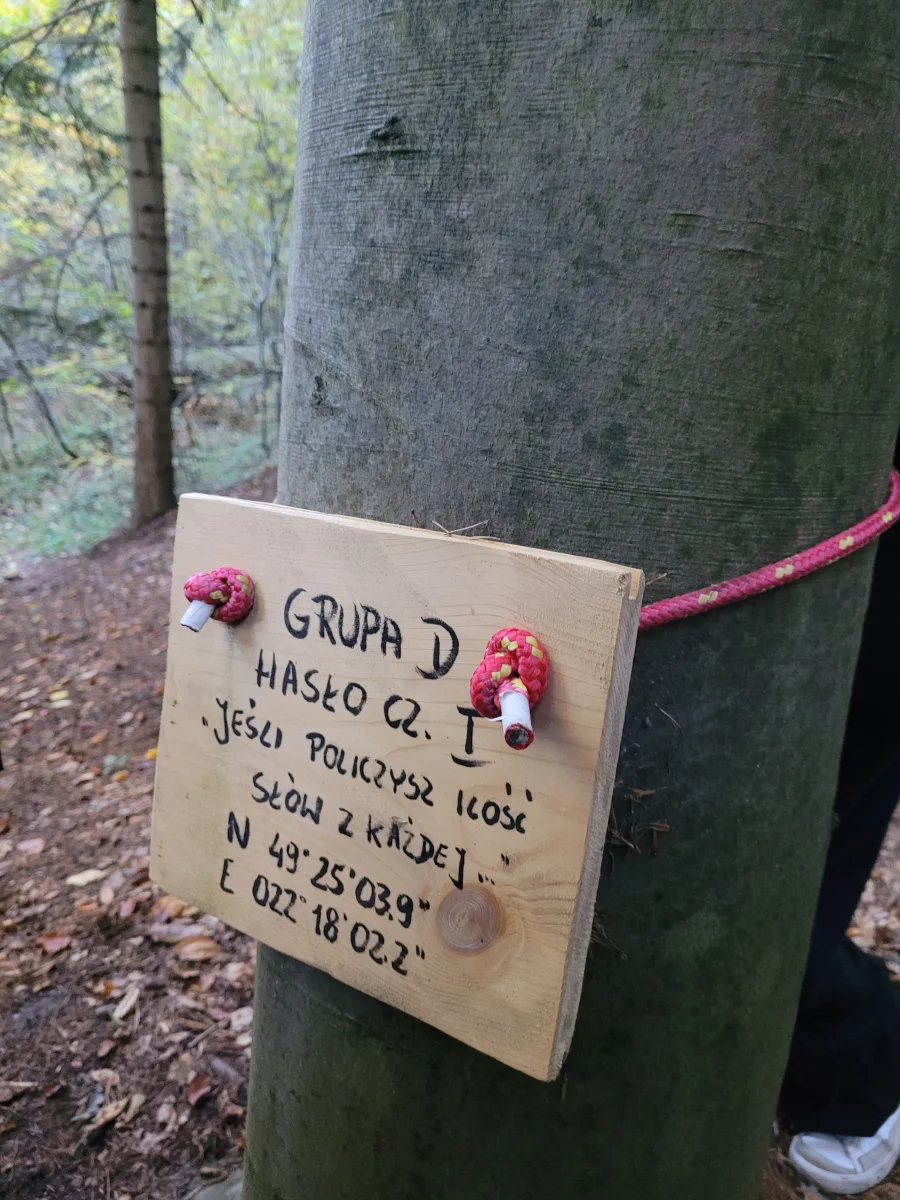 GRUPA D
HASŁO CZ. I
"JEŚLI POLICZYSZ ILOŚĆ
SŁÓW Z KAŻDEJ..."
N 49°25'03.9"
E 022°18'02.2"